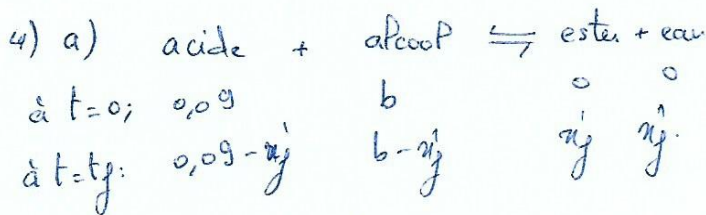 4) a) acide + alcool ⇌ ester + eau
à t=0; 0,09 b 0 0
à t=tf: 0,09-x'f b-x'f x'f x'f.